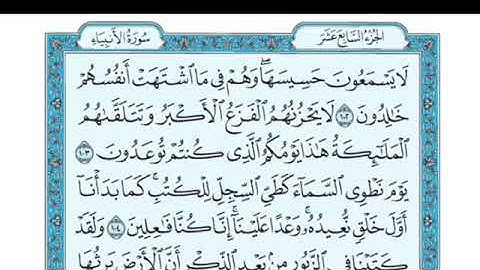 سُورَةُ الأَنبِيَاءِ
الجُزْءُ السَّابِعَ عَشَرَ
لَا يَسْمَعُونَ حَسِيسَهَا ۖ وَهُمْ فِي مَا ٱشْتَهَتْ أَنفُسُهُمْ
خَٰلِدُونَ ١٠٢ لَا يَحْزُنُهُمُ ٱلْفَزَعُ ٱلْأَكْبَرُ وَتَتَلَقَّىٰهُمُ
ٱلْمَلَٰٓئِكَةُ هَٰذَا يَوْمُكُمُ ٱلَّذِي كُنتُمْ تُوعَدُونَ ١٠٣
يَوْمَ نَطْوِي ٱلسَّمَآءَ كَطَيِّ ٱلسِّجِلِّ لِلْكُتُبِ ۚ كَمَا بَدَأْنَآ
أَوَّلَ خَلْقٍ نُّعِيدُهُۥ ۚ وَعْدًا عَلَيْنَآ ۚ إِنَّا كُنَّا فَٰعِلِينَ ١٠٤ وَلَقَدْ
كَتَبْنَا فِي ٱلزَّبُورِ مِنۢ بَعْدِ ٱلذِّكْرِ أَنَّ ٱلْأَرْضَ يَرِثُهَا